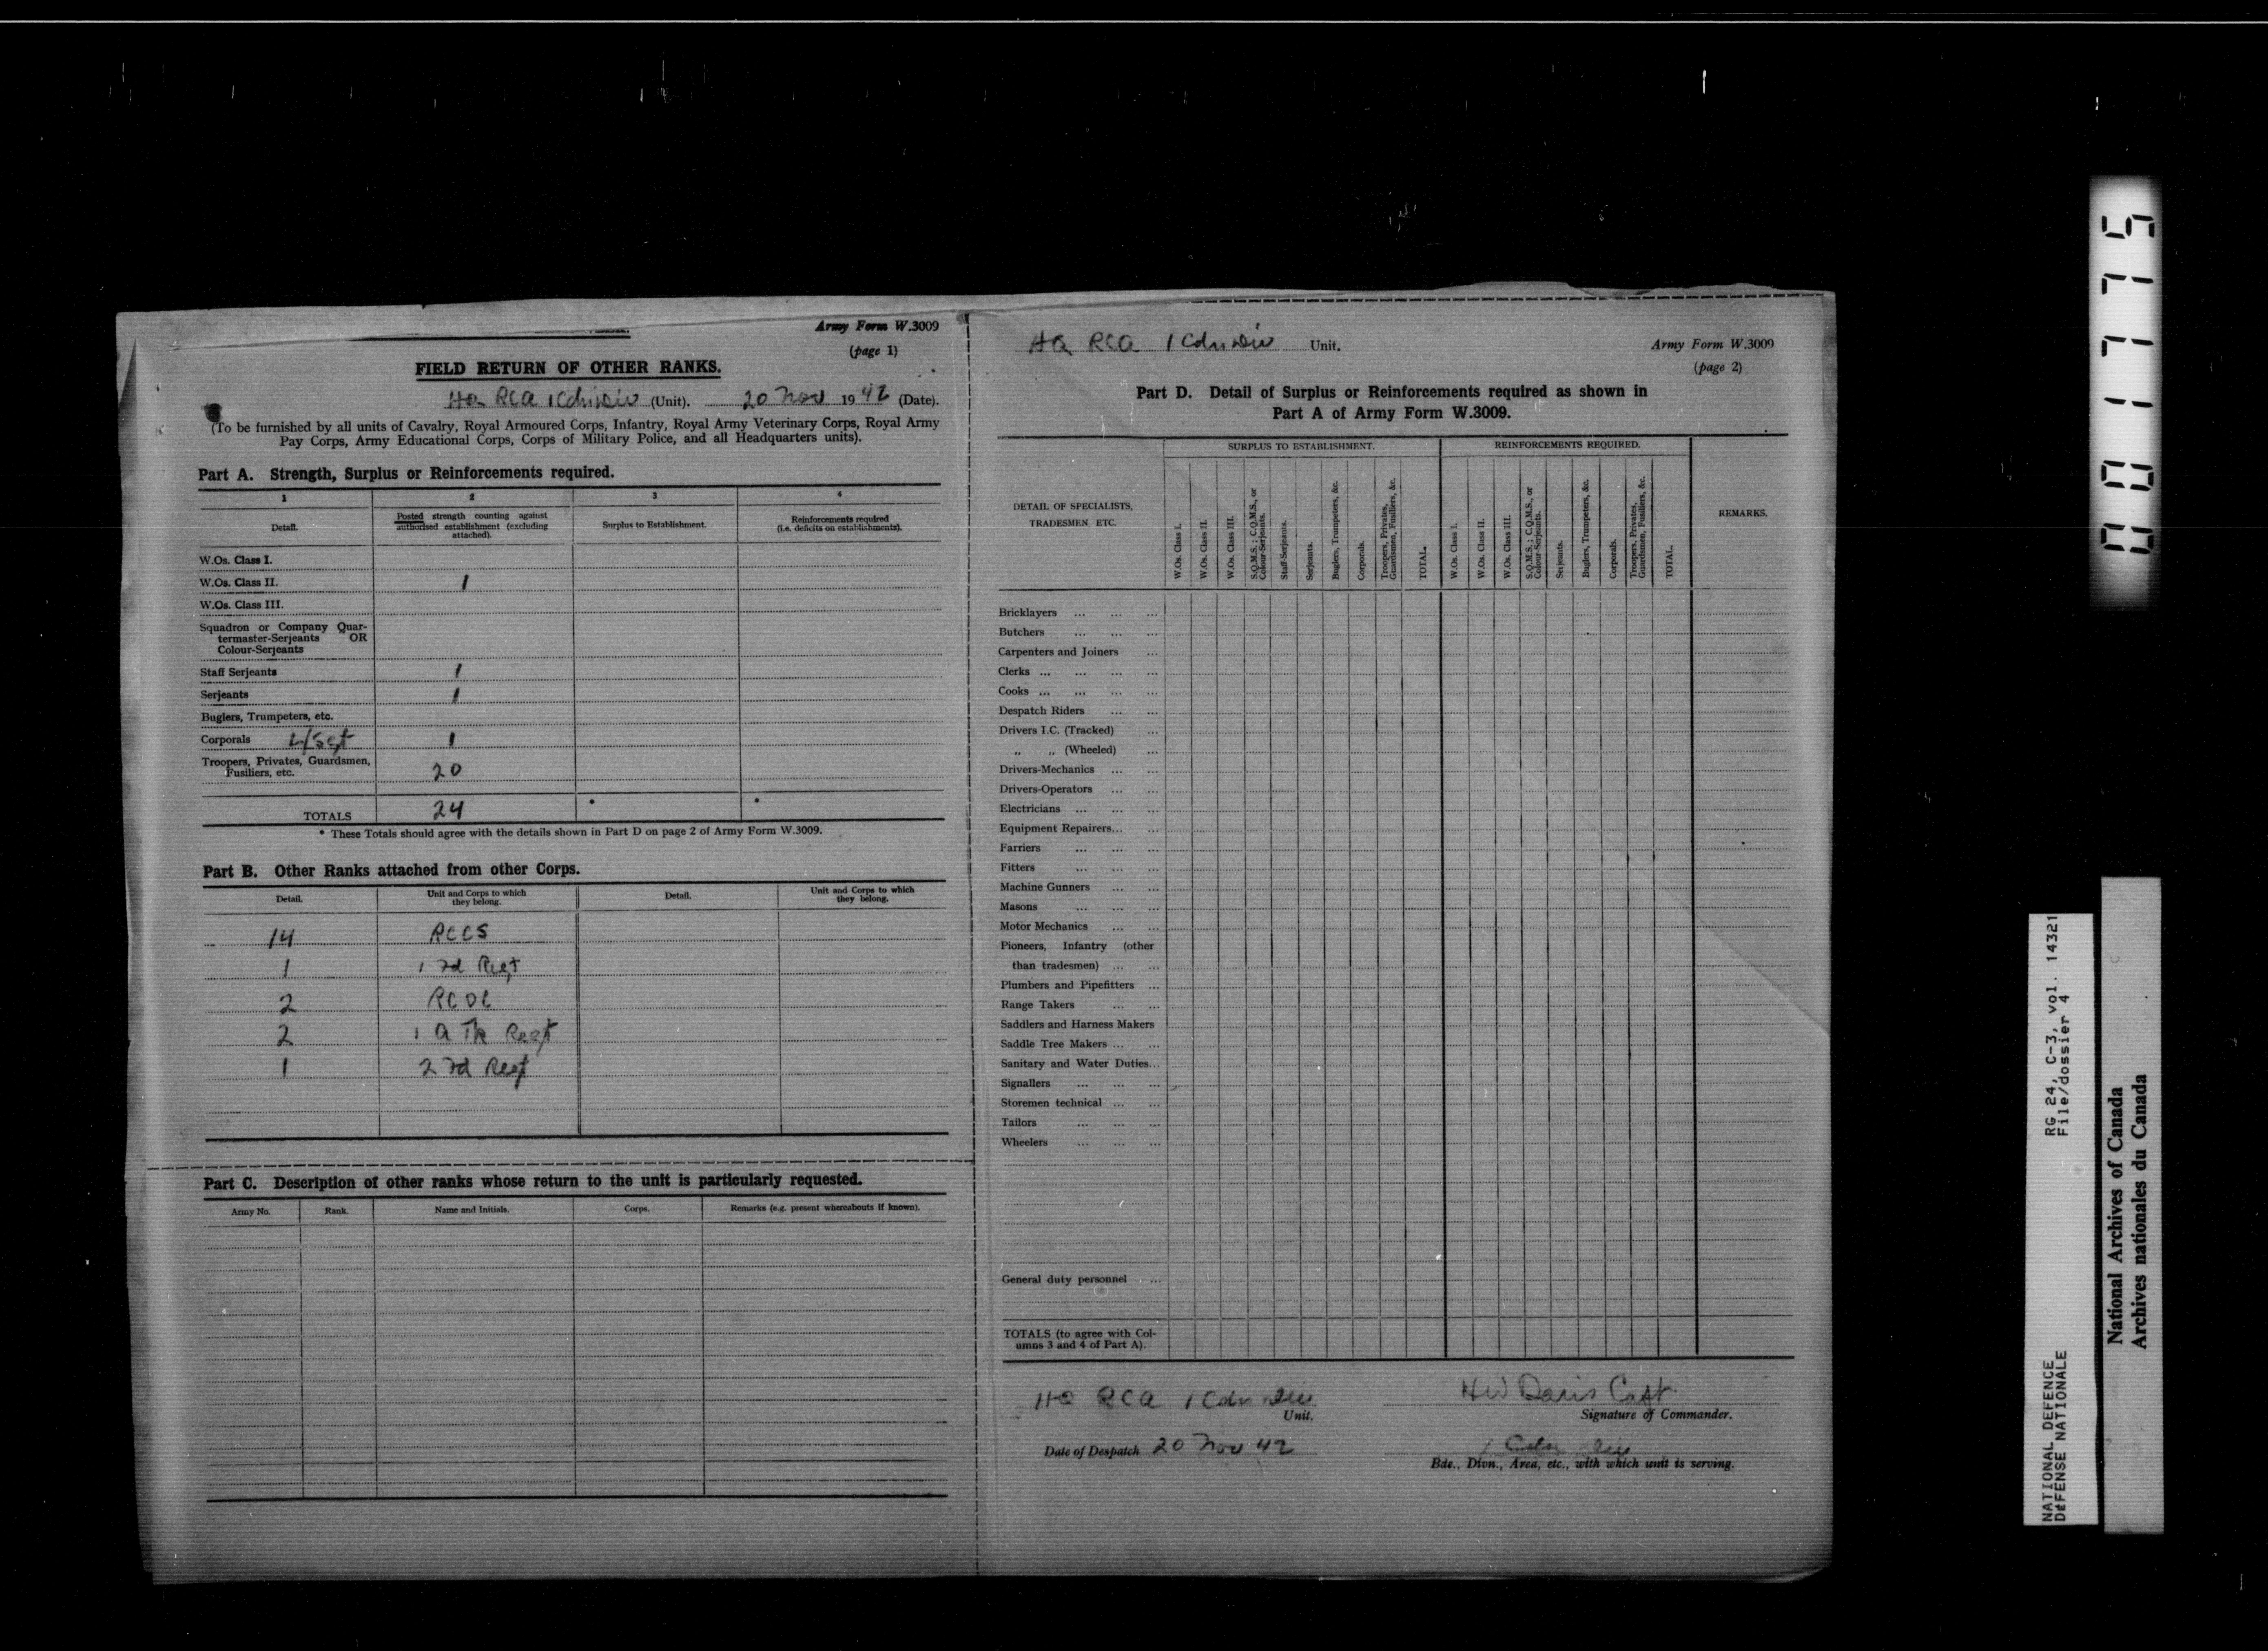 Army Form W.3009
(page 1)
FIELD RETURN OF OTHER RANKS.
HQ RCA 1 Cdn Div (Unit). 20 Nov 1942 (Date).
(To be furnished by all units of Cavalry, Royal Armoured Corps, Infantry, Royal Army Veterinary Corps, Royal Army
Pay Corps, Army Educational Corps, Corps of Military Police, and all Headquarters units).
Part A. Strength, Surplus or Reinforcements required.
1 2 3 4
Detail.
Posted strength counting against
authorised establishment (excluding
attached).
Surplus to Establishment.
Reinforcements required
(i.e. deficits on establishments).
W.Os. Class I.
W.Os. Class II. 1
W.Os. Class III.
Squadron or Company Quar-
termaster-Serjeants OR
Colour-Serjeants
Staff Serjeants 1
Serjeants 1
Buglers, Trumpeters, etc.
Corporals L/Sgt 1
Troopers, Privates, Guardsmen,
Fusiliers, etc. 20
TOTALS 24 * *
* These Totals should agree with the details shown in Part D on page 2 of Army Form W.3009.
Part B. Other Ranks attached from other Corps.
Detail.
Unit and Corps to which
they belong.
Detail.
Unit and Corps to which
they belong.
14 RCCS
1 1 Fd Regt
2 RCOC
2 1 A Tk Regt
1 2 Fd Regt
Part C. Description of other ranks whose return to the unit is particularly requested.
Army No. Rank. Name and Initials. Corps. Remarks (e.g. present whereabouts if known).
HQ RCA 1 Cdn Div Unit.
Army Form W.3009
(page 2)
Part D. Detail of Surplus or Reinforcements required as shown in
Part A of Army Form W.3009.
DETAIL OF SPECIALISTS,
TRADESMEN, ETC.
SURPLUS TO ESTABLISHMENT.
W.Os. Class I.
W.Os. Class II.
W.Os. Class III.
S.Q.M.S. ; C.Q.M.S., or
Colour-Serjeants.
Staff-Serjeants.
Serjeants.
Buglers, Trumpeters, &c.
Corporals.
Troopers, Privates,
Guardsmen, Fusiliers, &c.
TOTAL.
REINFORCEMENTS REQUIRED.
W.Os. Class I.
W.Os. Class II.
W.Os. Class III.
S.Q.M.S. ; C.Q.M.S., or
Colour-Serjeants.
Serjeants.
Buglers, Trumpeters, &c.
Corporals.
Troopers, Privates,
Guardsmen, Fusiliers, &c.
TOTAL.
REMARKS.
Bricklayers ... ... ...
Butchers ... ... ...
Carpenters and Joiners ...
Clerks ... ... ... ...
Cooks ... ... ... ...
Despatch Riders ... ...
Drivers I.C. (Tracked) ...
„ „ (Wheeled) ...
Drivers-Mechanics ... ...
Drivers-Operators ... ...
Electricians ... ... ...
Equipment Repairers... ...
Farriers ... ... ...
Fitters ... ... ...
Machine Gunners ... ...
Masons ... ... ...
Motor Mechanics ... ...
Pioneers, Infantry (other
than tradesmen) ... ...
Plumbers and Pipefitters ...
Range Takers ... ...
Saddlers and Harness Makers
Saddle Tree Makers ... ...
Sanitary and Water Duties...
Signallers ... ... ...
Storemen technical ... ...
Tailors ... ... ...
Wheelers ... ... ...
General duty personnel ...
TOTALS (to agree with Col-
umns 3 and 4 of Part A).
HQ RCA 1 Cdn Div
Unit.
HW Davis Capt.
Signature of Commander.
Date of Despatch 20 Nov 42
1 Cdn Div
Bde., Divn., Area, etc., with which unit is serving.
001775
NATIONAL DEFENCE RG 24, C-3, vol. 14321
DéFENSE NATIONALE File/dossier 4
National Archives of Canada
Archives nationales du Canada